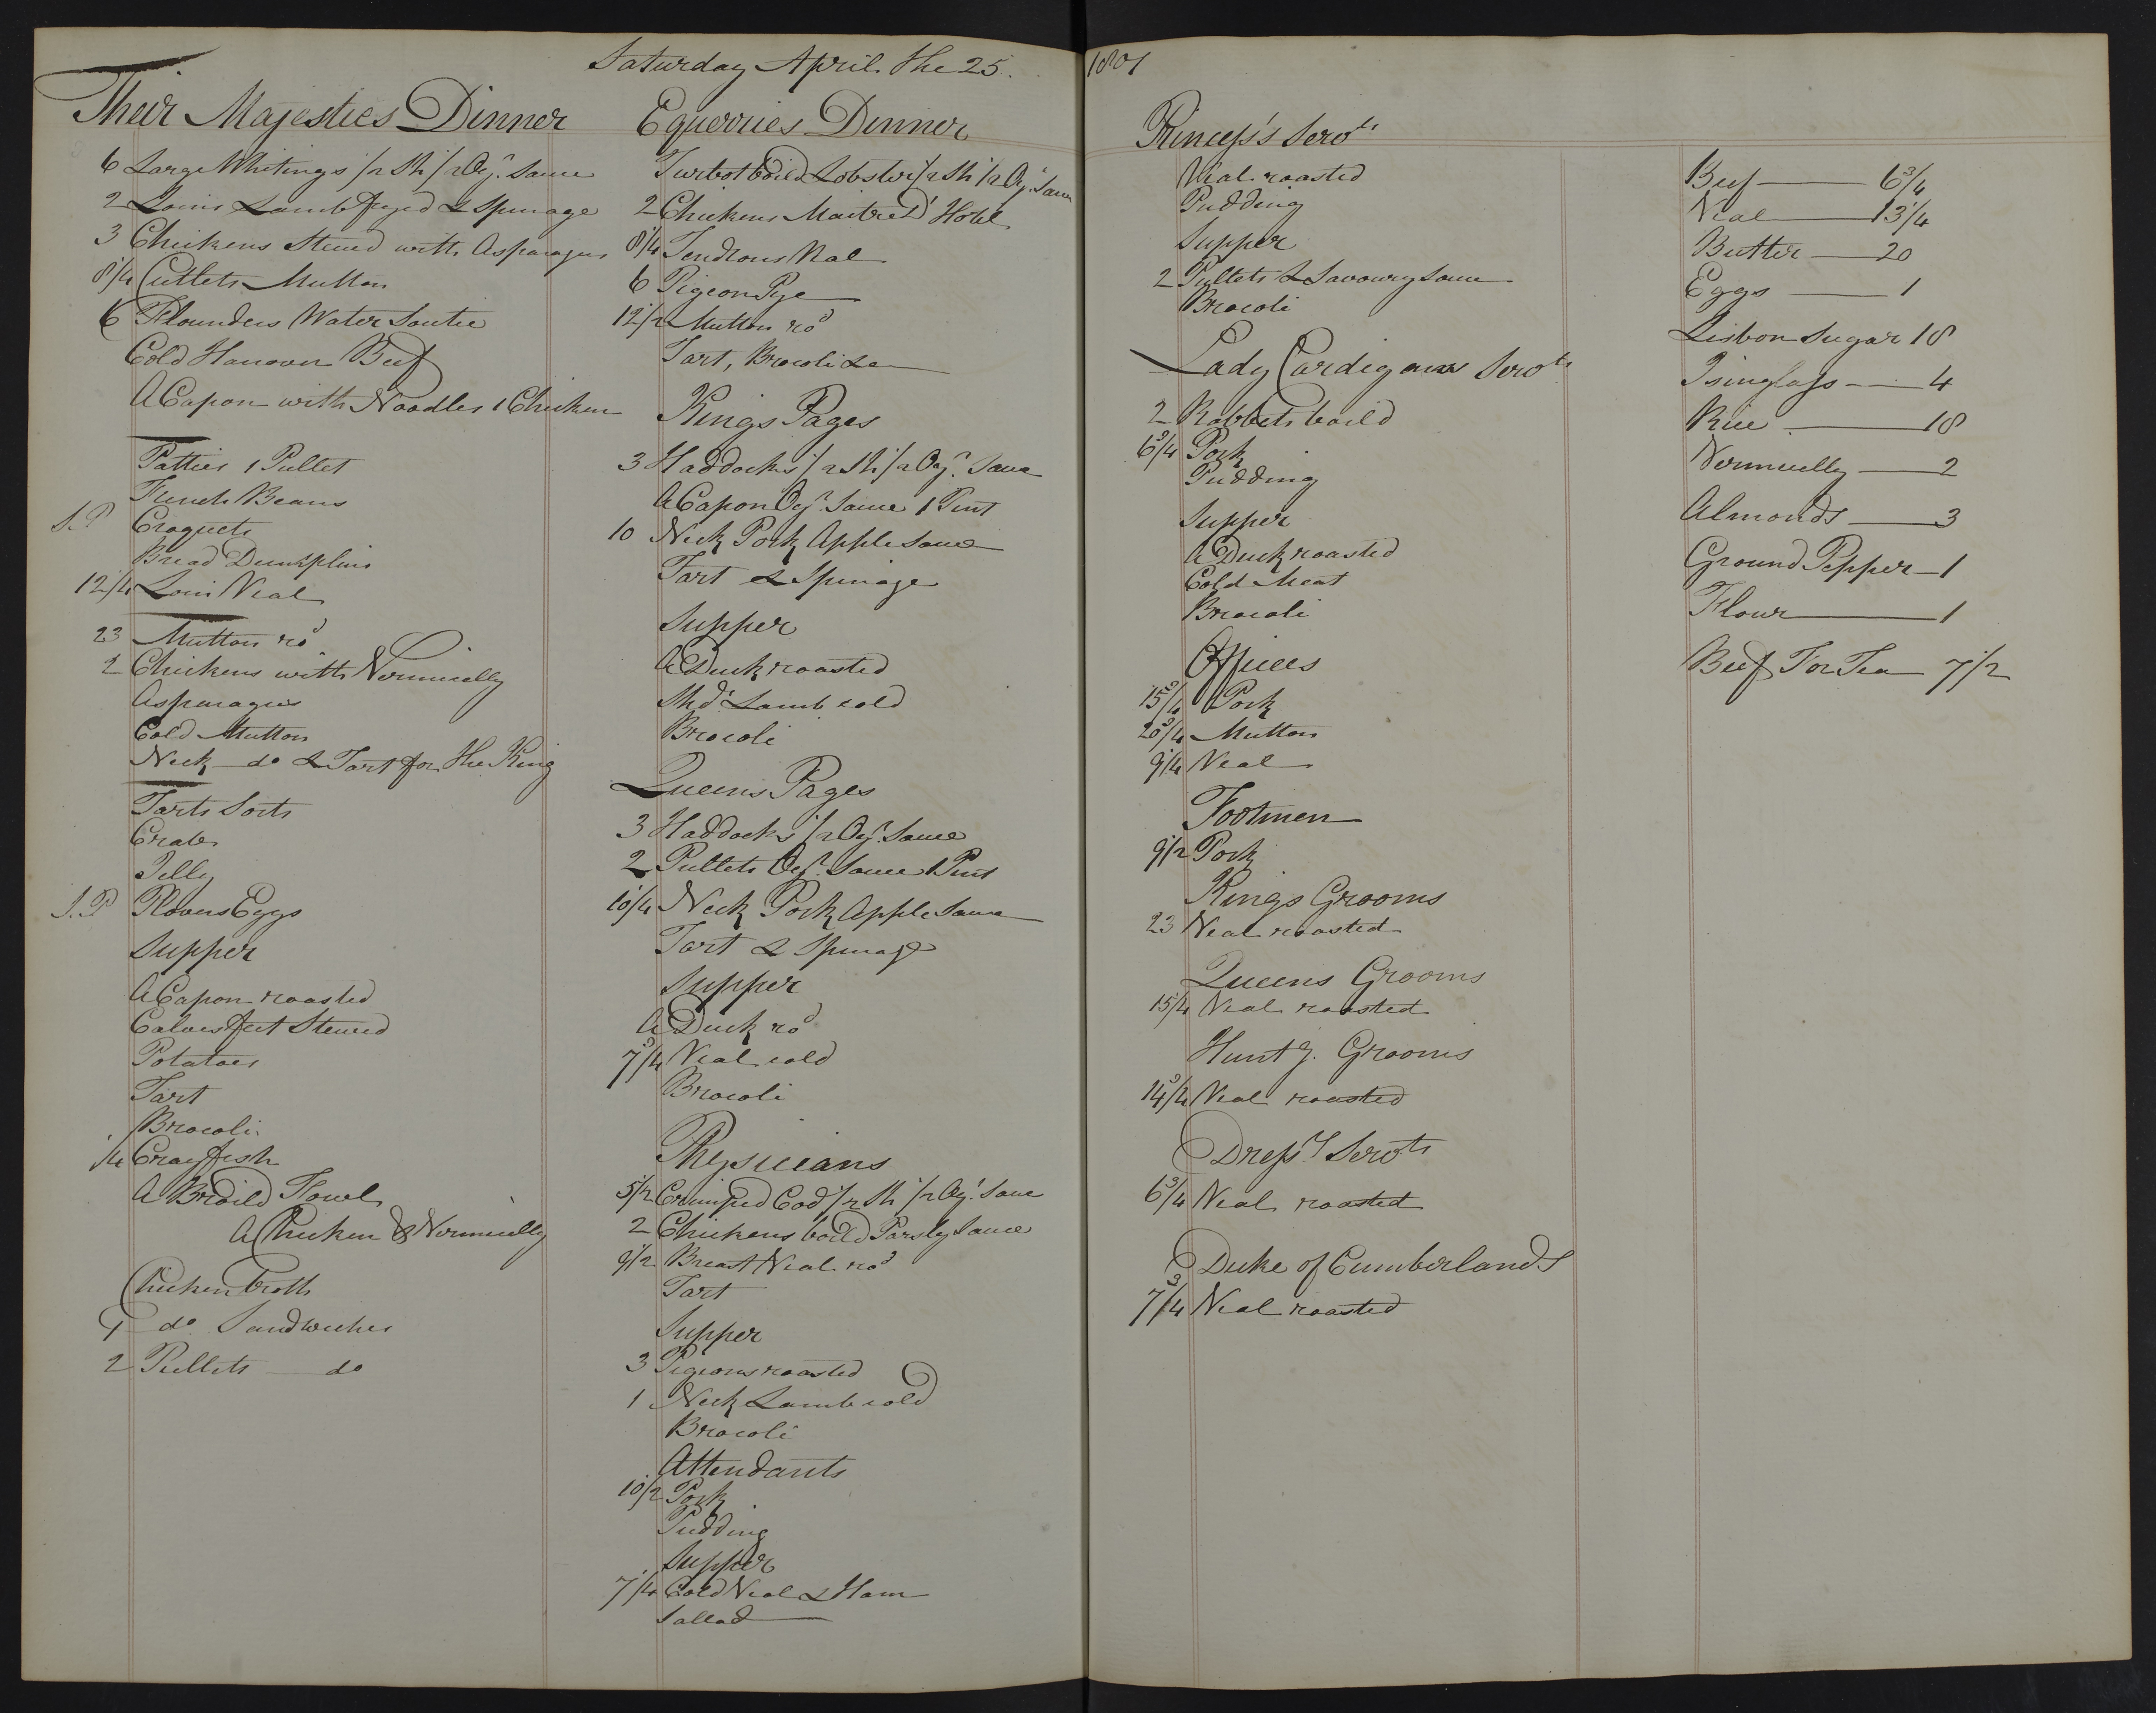 Saturday April the 25. 1801
Their Majesties Dinner
6 Large Whitings 1/2 Sh 1/2 Oyr. Sauce
2 Loins Lamb fryed & Spinage
3 Chickens Stewed with Asparagus
8 1/4 Cutlets Mutton
6 Flounders Water Soutie
Cold Hanover Beef
A Capon with Noodles 1 Chicken
Patties 1 Pullet
French Beans
S.P Croquets
Bread Dumsplins
12 1/4 Loin Veal
23 Mutton rod
2 Chickens with Vermicelly
Asparagus
Cold Mutton
Neck do & Tart for the King
Tarts Sorts
Crabs
Jelly
S.P Plovers Eggs
Supper
A Capon roasted
Calves feet Stewed
Potatoes
Tart
Brocoli
1/4 Crayfish
A Broild Fowl
A Chicken & Vermicelly
Chicken broth
1 do Sandwiches
2 Pullets do
Equerries Dinner
Turbot boild Lobster 1/2 Sh 1/2 Oyr. Sauce
2 Chickens Maitre D' Hotel
8 1/4 Tendrons Veal
6 Pigeon Pye
12 1/2 Mutton rod
Tart, Brocoli &c
Kings Pages
3 Haddocks 1/2 Sh 1/2 Oyr. Sauce
A Capon Oyr. Sauce 1 Pint
10 Neck Pork Apple Sauce
Tart & Spinage
Supper
A Duck roasted
Shdr. Lamb cold
Brocoli
Queens Pages
3 Haddocks 1/2 Oyr. Sauce
2 Pullets Oyr. Sauce 1 Pint
10 1/4 Neck Pork Apple Sauce
Tart & Spinage
Supper
A Duck rod
7 3/4 Veal cold
Brocoli
Physicians
5 1/2 Crimped Cod 1/2 Sh 1/2 Oyr. Sauce
2 Chickens boild Parsley Sauce
9 1/2 Breast Veal rod
Tart
Supper
3 Pigeons roasted
1 Neck Lamb cold
Brocoli
Attendants
10 1/2 Pork
Pudding
Supper
7 1/4 Cold Veal & Ham
Sallad
Princess's Servts
Veal roasted
Pudding
Supper
2 Pullets & Savoury Sauce
Brocoli
Lady Cardigans Servts
2 Rabbets boild
6 3/4 Pork
Pudding
Supper
A Duck roasted
Cold Meat
Brocoli
Offices
15 3/4 Pork
20 3/4 Mutton
9 1/4 Veal
Footmen
9 1/2 Pork
Kings Grooms
23 Veal roasted
Queens Grooms
15 1/4 Veal roasted
Huntg. Grooms
14 3/4 Veal roasted
Dressrs Servts
6 3/4 Veal roasted
Duke of Cumberlands
7 3/4 Veal roasted
Beef 6 3/4
Veal 13 1/4
Butter 20
Eggs 1
Lisbon Sugar 18
Isinglass 4
Rice 18
Vermicelly 2
Almonds 3
Ground Pepper 1
Flour 1
Beef For Tea 7 1/2